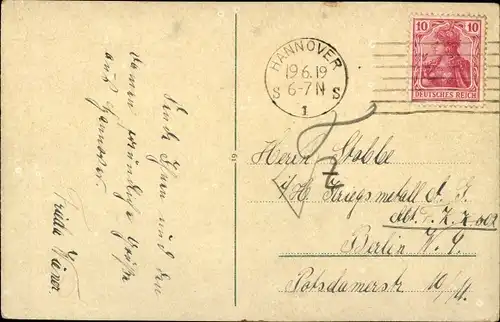 Sende Ihnen und den
Damen freundliche Grüße
aus Hannover.
Frieda
HANNOVER
19.6.19
6-7N
S S
1
10 10
DEUTSCHES REICH
63
Herrn Stobbe
i/H. Kriegsmetall A. G.
Abt.
Berlin W. 9.
Potsdamerstr. 10/11.